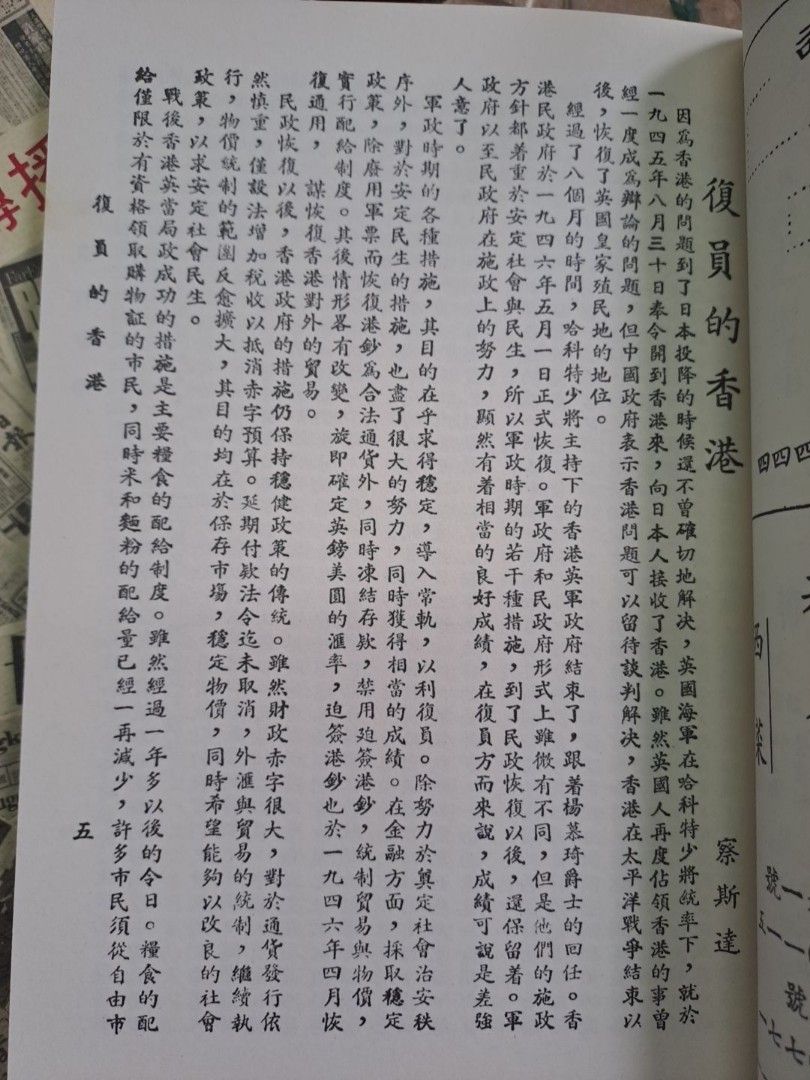 復員的香港
察斯達
因爲香港的問題到了日本投降的時候還不曾確切地解决，英國海軍在哈科特少將統率下，就於
一九四五年八月三十日奉令開到香港來，向日本人接收了香港。雖然英國人再度佔領香港的事曾
經一度成爲辯論的問題，但中國政府表示香港問題可以留待談判解决，香港在太平洋戰爭結束以
後，恢復了英國皇家殖民地的地位。
經過了八個月的時間，哈科特少將主持下的香港英軍政府結束了，跟着楊慕琦爵士的回任。香
港民政府於一九四六年五月一日正式恢復。軍政府和民政府形式上雖微有不同，但是他們的施政
方針都着重於安定社會與民生，所以軍政時期的若干種措施，到了民政恢復以後，還保留着。軍
政府以至民政府在施政上的努力，顯然有着相當的良好成績，在復員方而來說，成績可說是差強
人意了。
軍政時期的各種措施，其目的在乎求得穩定，導入常軌，以利復員。除努力於奠定社會治安秩
序外，對於安定民生的措施，也盡了很大的努力，同時獲得相當的成績。在金融方面，採取穩定
政策，除廢用軍票而恢復港鈔爲合法通貨外，同時凍結存欵，禁用廹簽港鈔，統制貿易與物價，
實行配給制度。其後情形畧有改變，旋即確定英鎊美圓的滙率，迫簽港鈔也於一九四六年四月恢
復通用，謀恢復香港對外的貿易。
民政恢復以後，香港政府的措施仍保持穩健政策的傳統。雖然財政赤字很大，對於通貨發行依
然慎重，僅設法增加稅收以抵消赤字預算。延期付欵法令迄未取消，外滙與貿易的統制，繼續執
行，物價統制的範圍反愈擴大，其目的均在於保存市場，穩定物價，同時希望能夠以改良的社會
政策，以求安定社會民生。
戰後香港英當局政成功的措施是主要糧食的配給制度。雖然經過一年多以後的今日。糧食的配
給僅限於有資格領取購物証的市民，同時米和麵粉的配給量已經一再減少，許多市民須從自由市
復員的香港
五